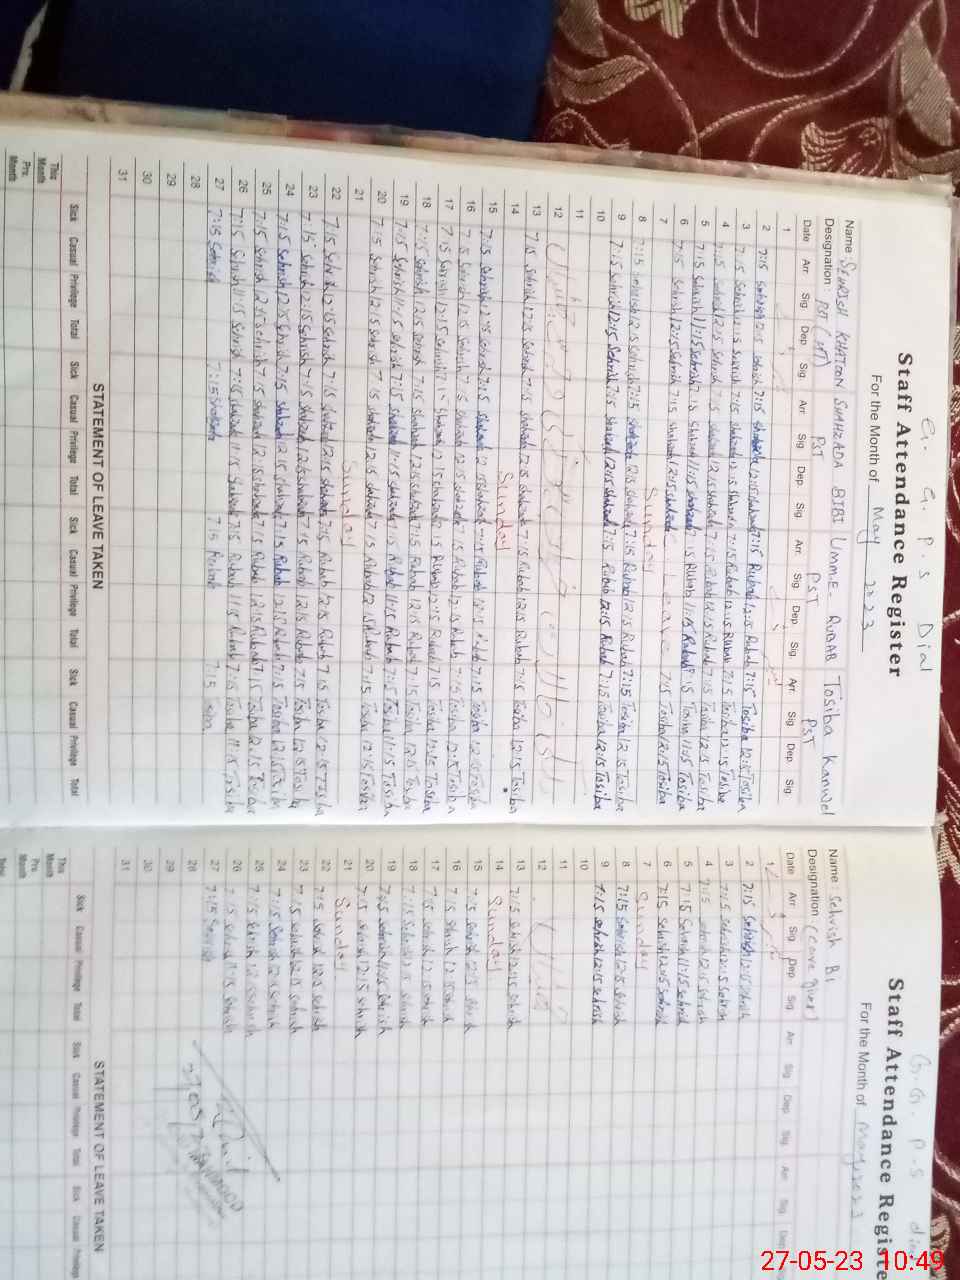 G. G. P. S Dial
Staff Attendance Register
For the Month of May 2023
Name: SEHRISH KHATOON SHAHZADA BIBI UMM-E-RUBAB Tosiba Kanwel
Designation: PST (HT) PST PST PST
Date Arr Sig Dep Sig Arr Sig Dep Sig Arr Sig Dep Sig Arr Sig Dep Sig
1
2 7:15 Sehrish 12:15 Sehrish 7:15 Shahzada 12:15 Shahzada 7:15 Rubab 12:15 Rubab 7:15 Tosiba 12:15 Tosiba
3 7:15 Sehrish 12:15 Sehrish 7:15 Shahzada 12:15 Shahzada 7:15 Rubab 12:15 Rubab 7:15 Tosiba 12:15 Tosiba
4 7:15 Sehrish 12:15 Sehrish 7:15 Shahzada 12:15 Shahzada 7:15 Rubab 12:15 Rubab 7:15 Tosiba 12:15 Tosiba
5 7:15 Sehrish 11:15 Sehrish 7:15 Shahzada 11:15 Shahzada 7:15 Rubab 11:15 Rubab 7:15 Tosiba 11:15 Tosiba
6 7:15 Sehrish 12:15 Sehrish 7:15 Shahzada 12:15 Shahzada Leave 7:15 Tosiba 12:15 Tosiba
7 Sunday
8 7:15 Sehrish 12:15 Sehrish 7:15 Shahzada 12:15 Shahzada 7:15 Rubab 12:15 Rubab 7:15 Tosiba 12:15 Tosiba
9 7:15 Sehrish 12:15 Sehrish 7:15 Shahzada 12:15 Shahzada 7:15 Rubab 12:15 Rubab 7:15 Tosiba 12:15 Tosiba
10
11
12
13 7:15 Sehrish 12:15 Sehrish 7:15 Shahzada 12:15 Shahzada 7:15 Rubab 12:15 Rubab 7:15 Tosiba 12:15 Tosiba
14 Sunday
15 7:15 Sehrish 12:15 Sehrish 7:15 Shahzada 12:15 Shahzada 7:15 Rubab 12:15 Rubab 7:15 Tosiba 12:15 Tosiba
16 7:15 Sehrish 12:15 Sehrish 7:15 Shahzada 12:15 Shahzada 7:15 Rubab 12:15 Rubab 7:15 Tosiba 12:15 Tosiba
17 7:15 Sehrish 12:15 Sehrish 7:15 Shahzada 12:15 Shahzada 7:15 Rubab 12:15 Rubab 7:15 Tosiba 12:15 Tosiba
18 7:15 Sehrish 12:15 Sehrish 7:15 Shahzada 12:15 Shahzada 7:15 Rubab 12:15 Rubab 7:15 Tosiba 12:15 Tosiba
19 7:15 Sehrish 11:15 Sehrish 7:15 Shahzada 11:15 Shahzada 7:15 Rubab 11:15 Rubab 7:15 Tosiba 11:15 Tosiba
20 7:15 Sehrish 12:15 Sehrish 7:15 Shahzada 12:15 Shahzada 7:15 Rubab 12:15 Rubab 7:15 Tosiba 12:15 Tosiba
21 Sunday
22 7:15 Sehrish 12:15 Sehrish 7:15 Shahzada 12:15 Shahzada 7:15 Rubab 12:15 Rubab 7:15 Tosiba 12:15 Tosiba
23 7:15 Sehrish 12:15 Sehrish 7:15 Shahzada 12:15 Shahzada 7:15 Rubab 12:15 Rubab 7:15 Tosiba 12:15 Tosiba
24 7:15 Sehrish 12:15 Sehrish 7:15 Shahzada 12:15 Shahzada 7:15 Rubab 12:15 Rubab 7:15 Tosiba 12:15 Tosiba
25 7:15 Sehrish 12:15 Sehrish 7:15 Shahzada 12:15 Shahzada 7:15 Rubab 12:15 Rubab 7:15 Tosiba 12:15 Tosiba
26 7:15 Sehrish 11:15 Sehrish 7:15 Shahzada 11:15 Shahzada 7:15 Rubab 11:15 Rubab 7:15 Tosiba 11:15 Tosiba
27 7:15 Sehrish 7:15 Shahzada 7:15 Rubab 7:15
28
29
30
31
STATEMENT OF LEAVE TAKEN
Sick Casual Privilege Total Sick Casual Privilege Total Sick Casual Privilege Total Sick Casual Privilege Total
This Month
Prv. Month
G. G. P. S
Staff Attendance Registe
For the Month of May 2023
Name: Sehrish Bi
Designation: (Care giver)
Date Arr Sig Dep Sig Arr Sig Dep Sig Arr Sig Dep
1
2 7:15 Sehrish 12:15 Sehrish
3 7:15 Sehrish 12:15 Sehrish
4 7:15 Sehrish 12:15 Sehrish
5 7:15 Sehrish 11:15 Sehrish
6 7:15 Sehrish 12:15 Sehrish
7 Sunday
8 7:15 Sehrish 12:15 Sehrish
9 7:15 Sehrish 12:15 Sehrish
10
11
12
13 7:15 Sehrish 12:15 Sehrish
14 Sunday
15 7:15 Sehrish 12:15 Sehrish
16 7:15 Sehrish 12:15 Sehrish
17 7:15 Sehrish 12:15 Sehrish
18 7:15 Sehrish 12:15 Sehrish
19 7:15 Sehrish 11:15 Sehrish
20 7:15 Sehrish 12:15 Sehrish
21 Sunday
22 7:15 Sehrish 12:15 Sehrish
23 7:15 Sehrish 12:15 Sehrish
24 7:15 Sehrish 12:15 Sehrish
25 7:15 Sehrish 12:15 Sehrish
26 7:15 Sehrish 11:15 Sehrish
27 7:15 Sehrish
28
29
30
31
STATEMENT OF LEAVE TAKEN
Sick Casual Privilege Total Sick Casual Privilege Total Sick Casual Privilege
This Month
Prv. Month
Total
27-05-23 10:49